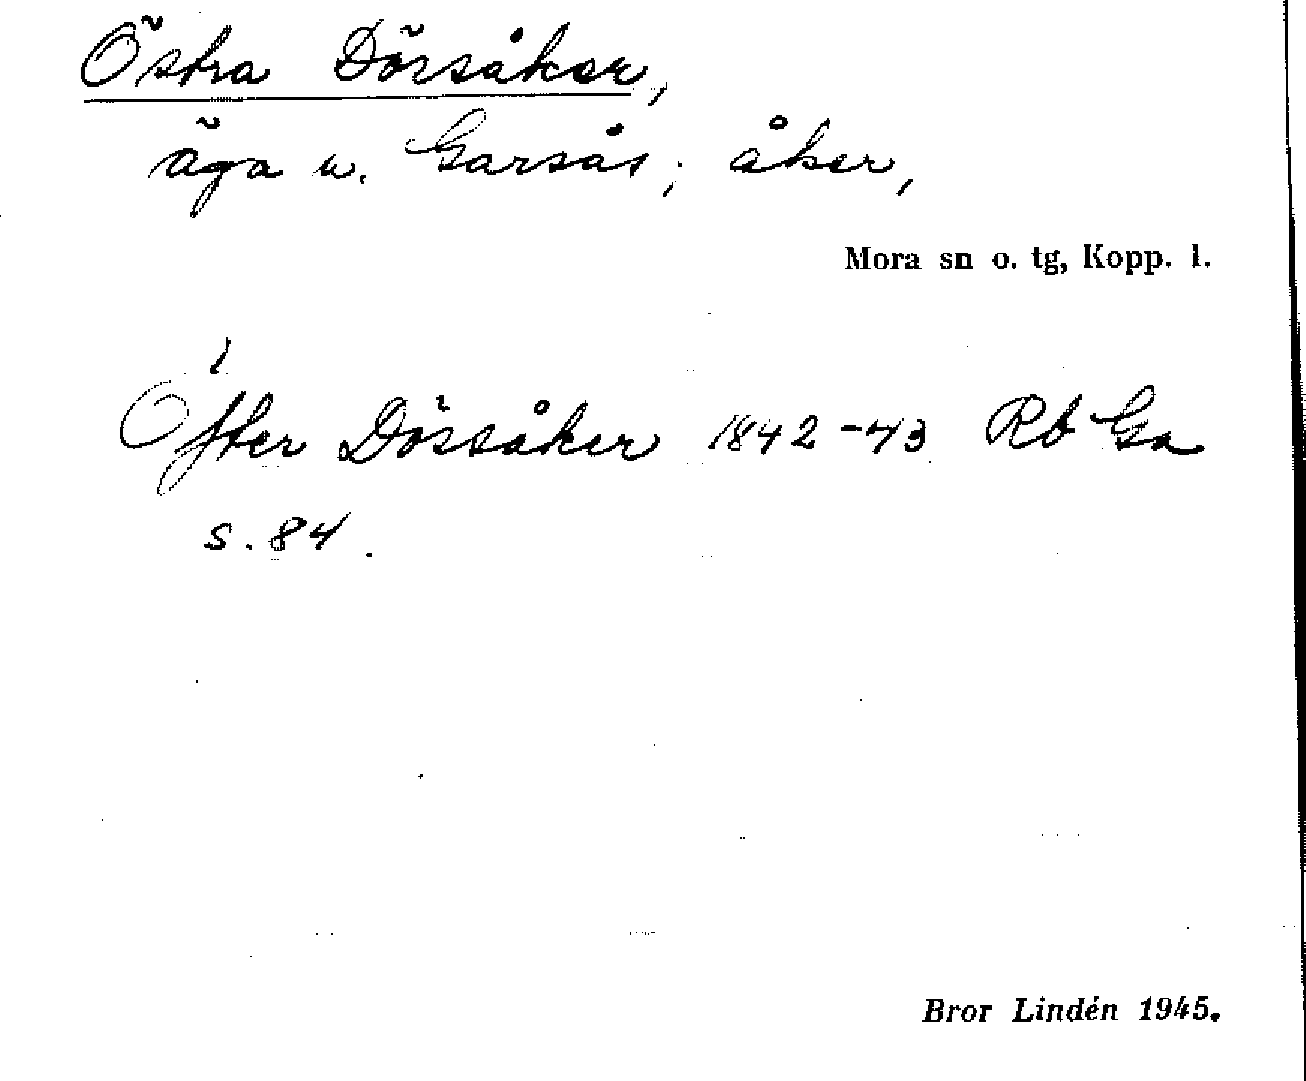 Östra Dörsåker,
äga u. Garsås; åker,
Mora sn o. tg, Kopp. l.
Öfter Dössåker 1842-43 Rb Ga
s. 84.
Bror Lindén 1945.